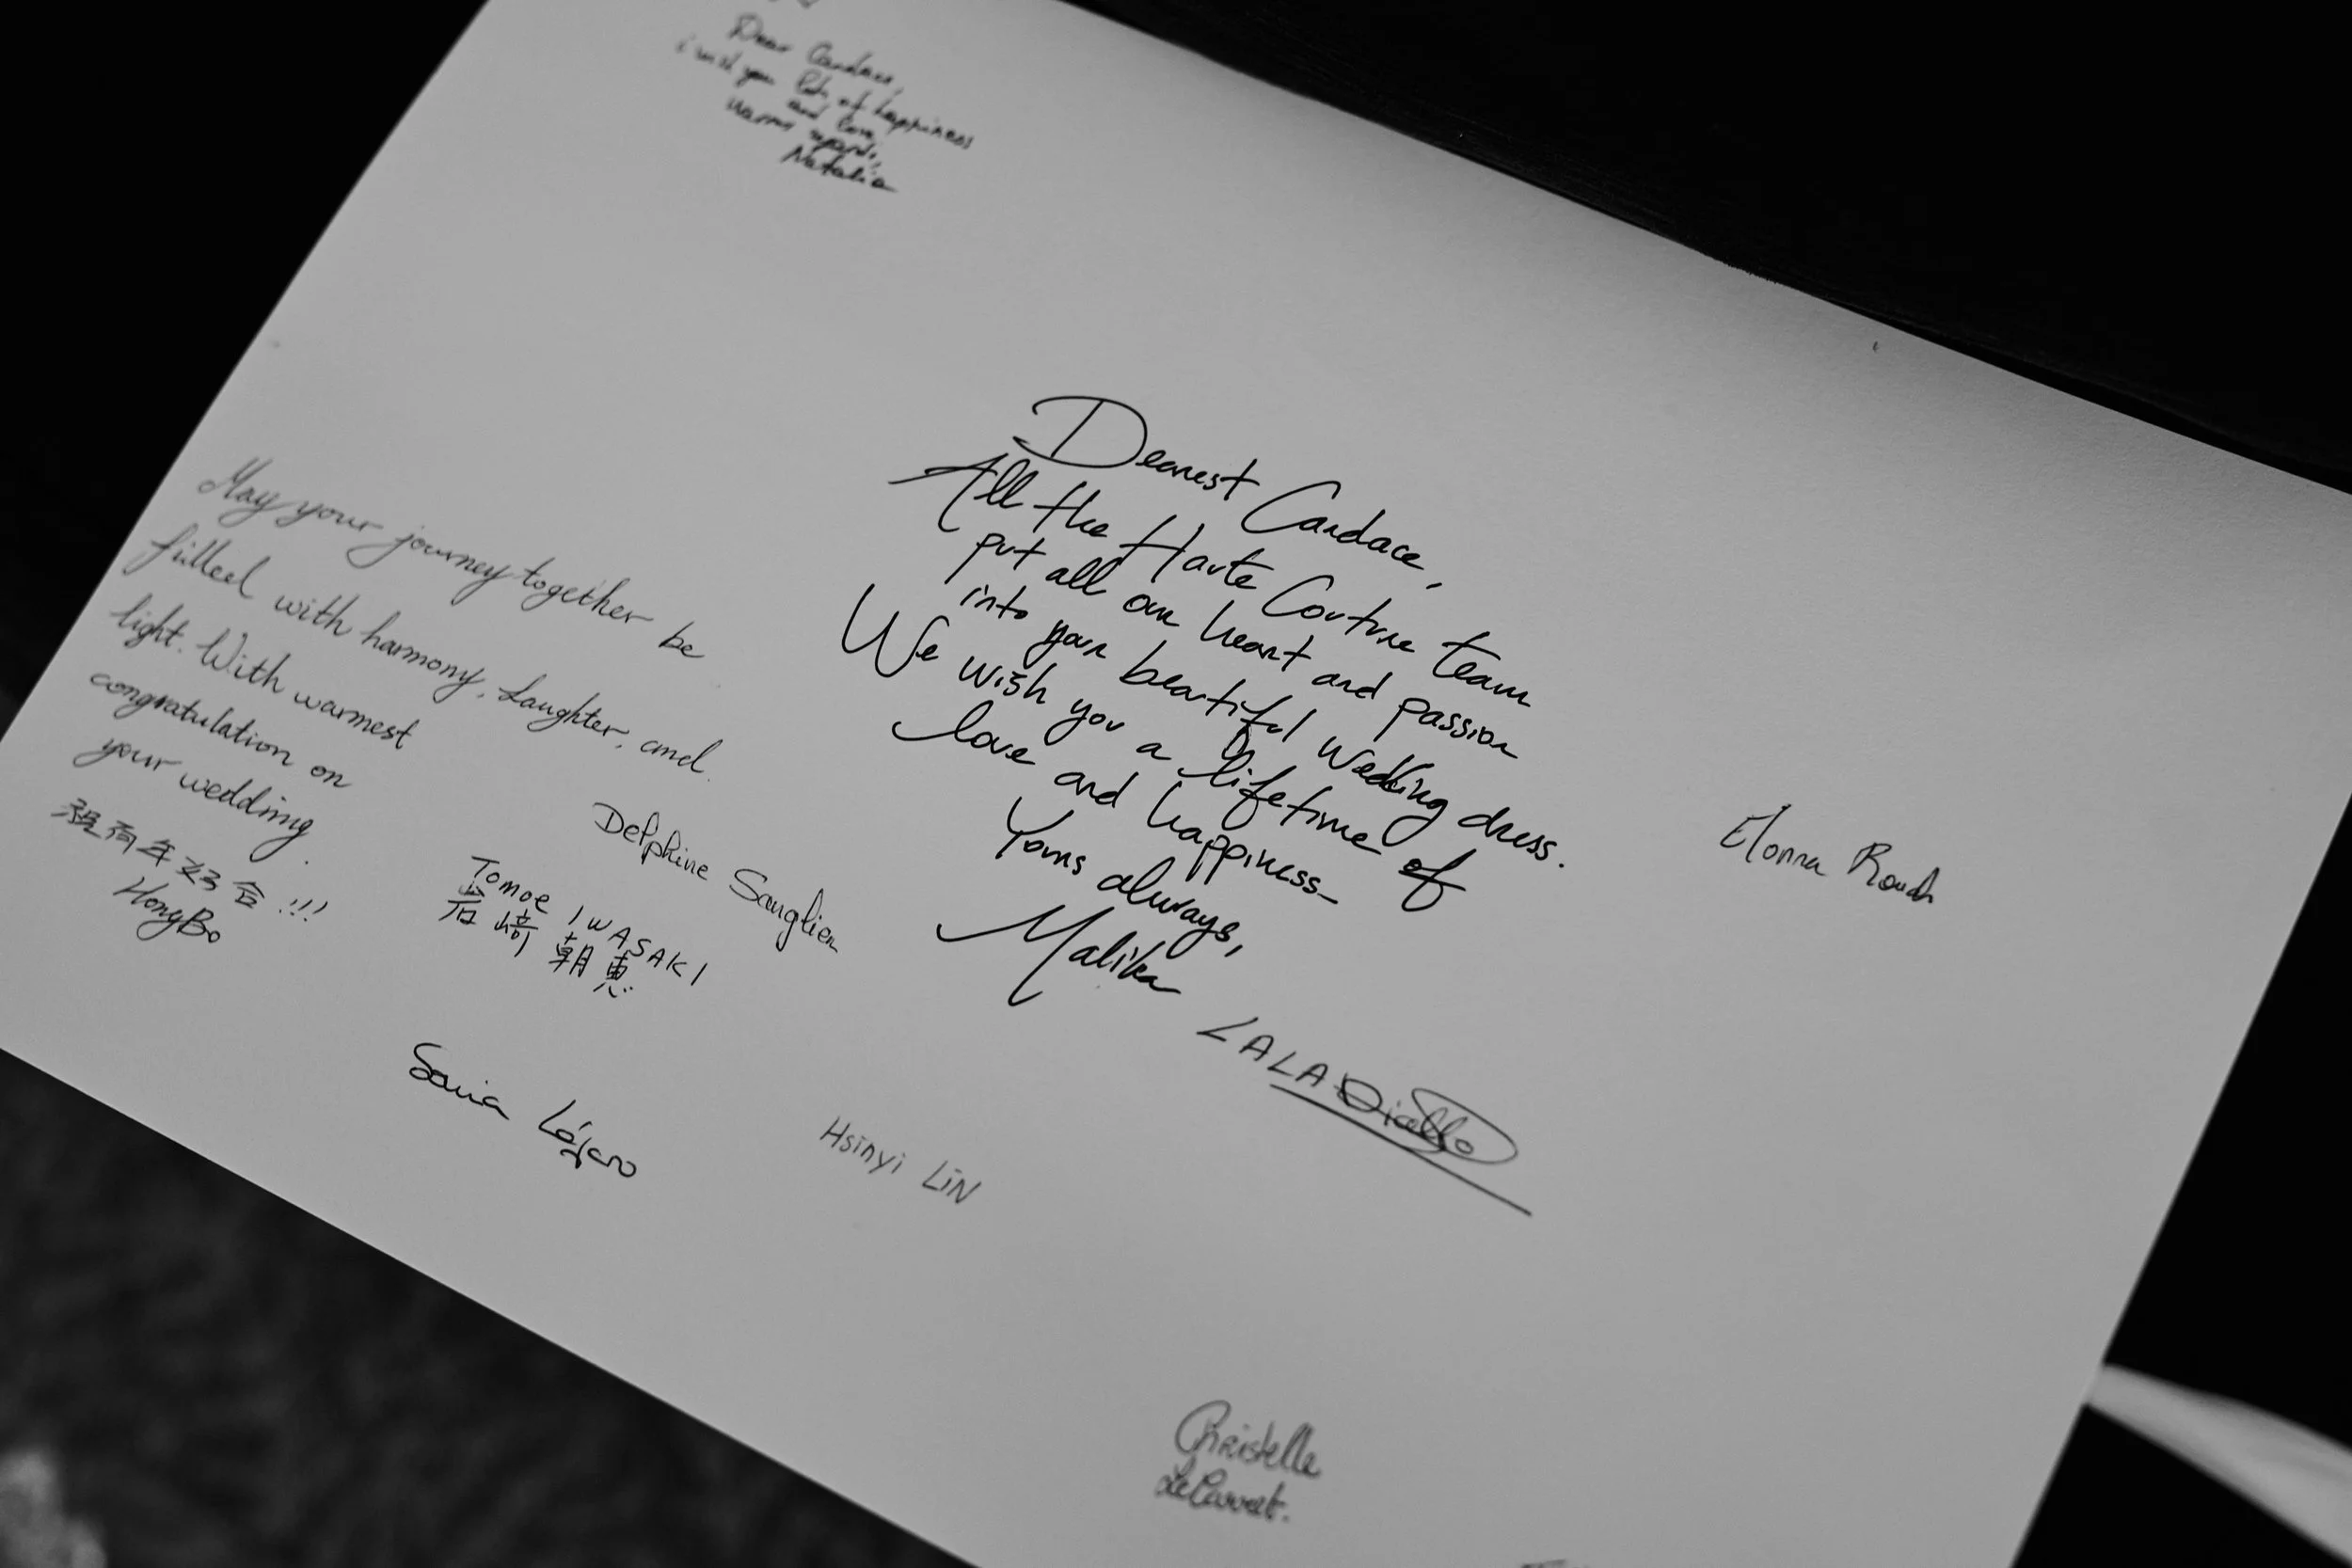 Dear Candace,
i wish you lots of happiness
and love,
warm regards,
Natalia
Dearest Candace,
All the Haute Couture team
put all our heart and passion
into your beautiful wedding dress.
We wish you a lifetime of
love and happiness
Yours always,
Malika
May your journey together be
fulled with harmony, Laughter, and
light. With warmest
congratulation on
your wedding.
年好合!!!
HongBo
Delphine Sanglier
Tomoe IWASAKI
岩崎 朝恵
Elonna
LALA Diallo
Sonia
Hsinyi LiN
Christelle